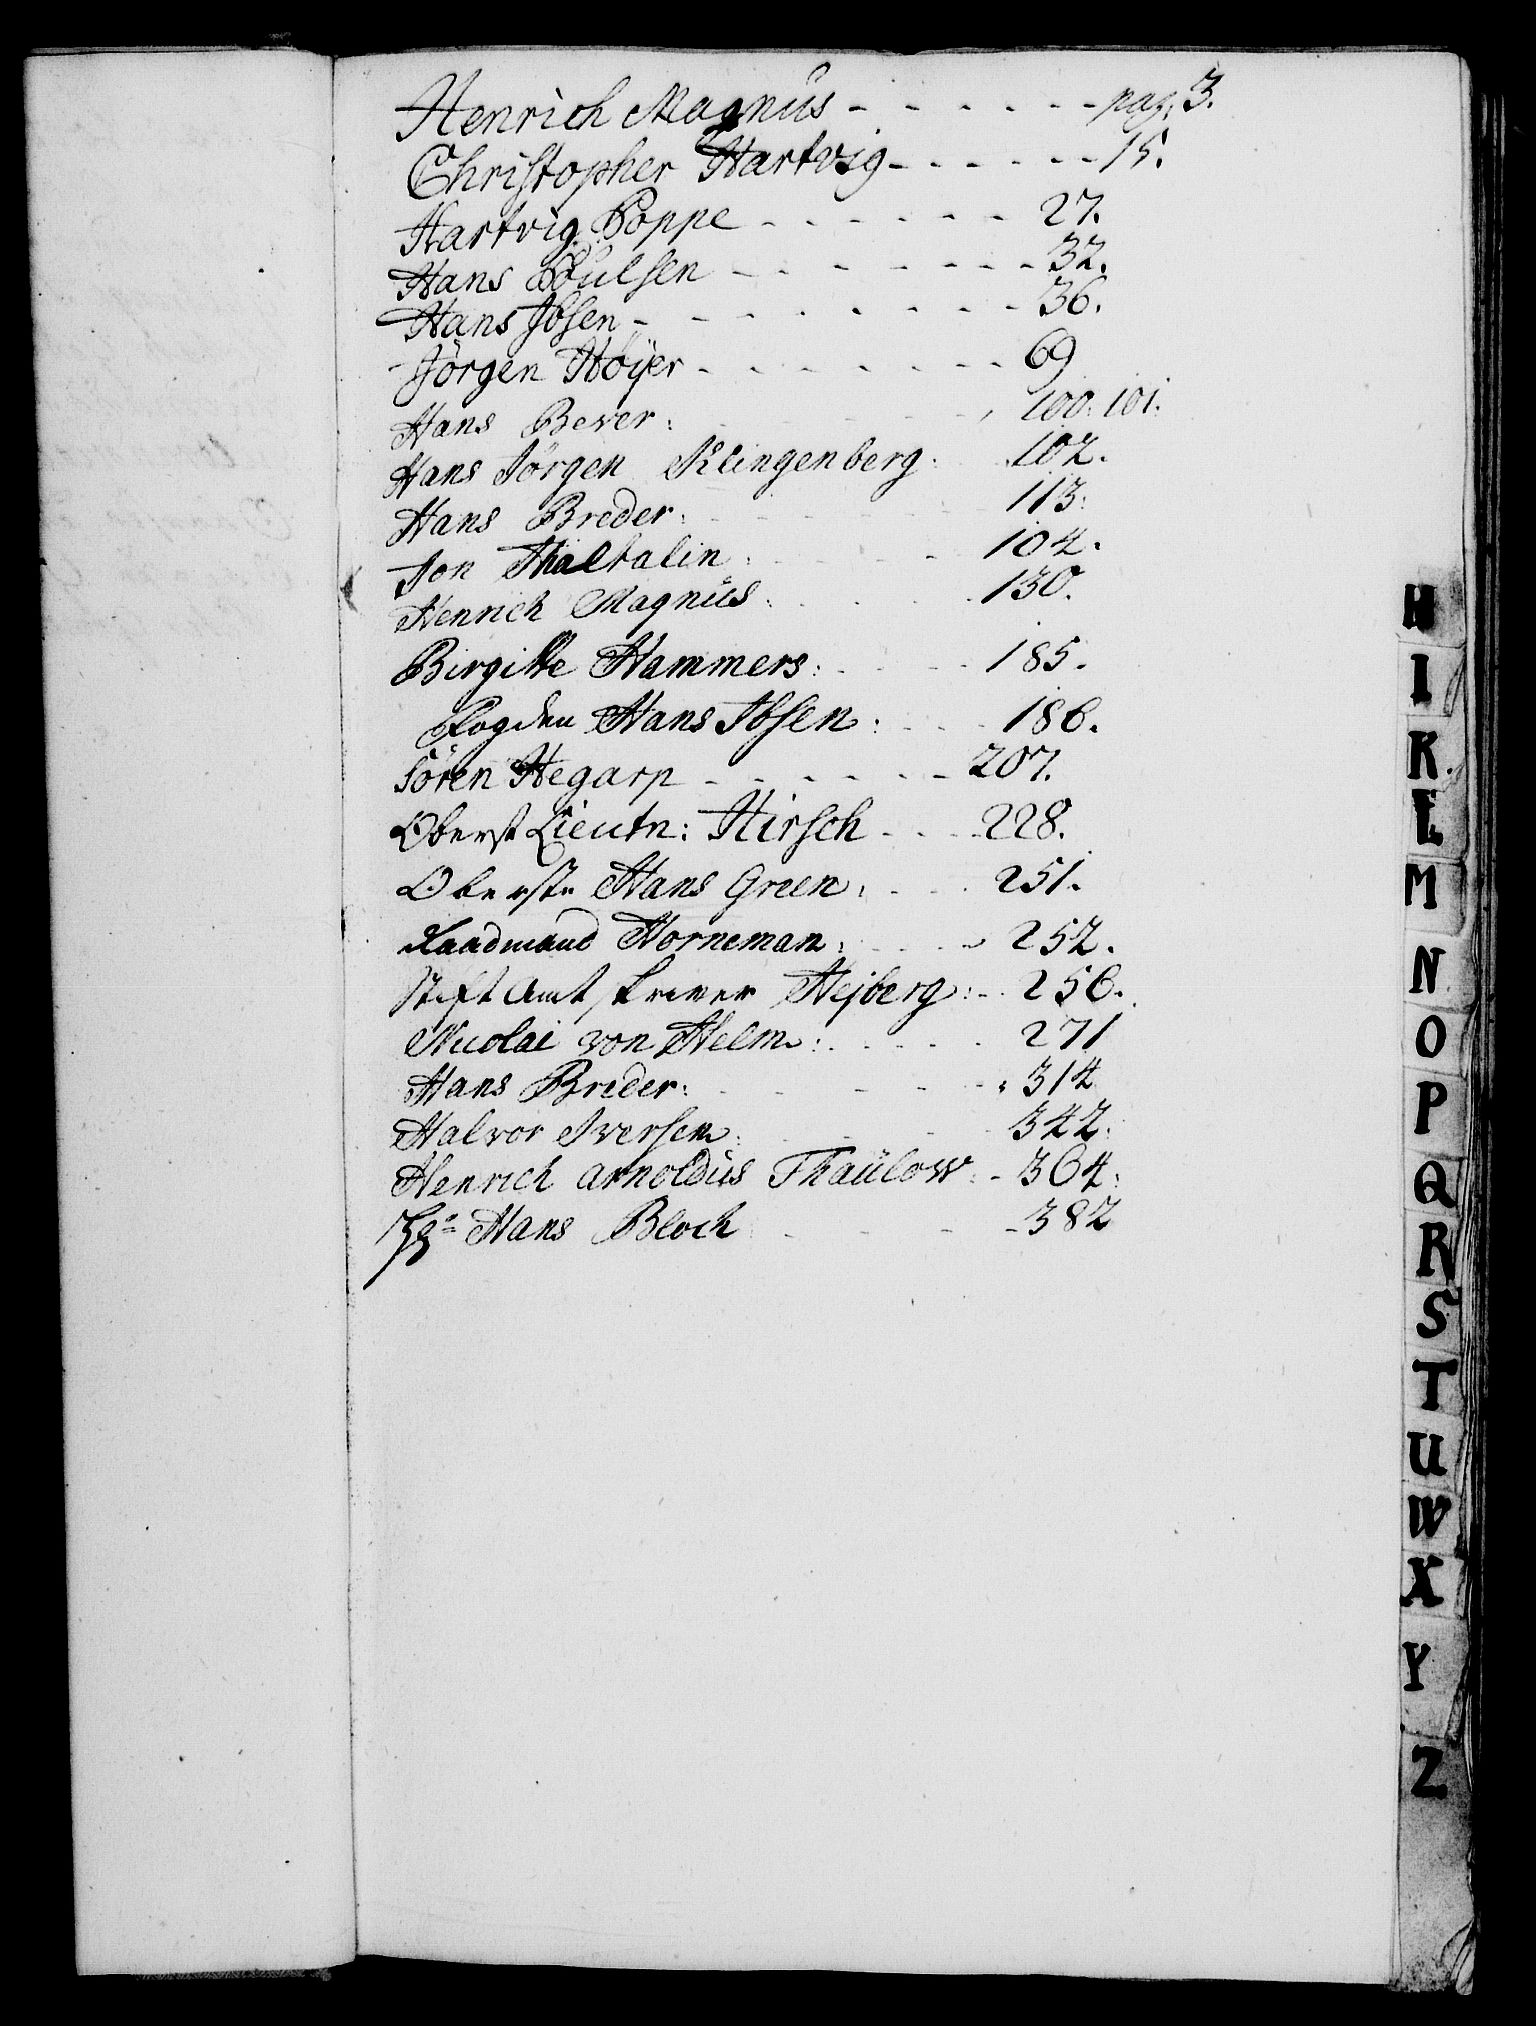 Henrich Magnus - - - - - - pag. 3.
Christopher Hartvig - - - - - - 15.
Hartvig Poppe - - - - - - 27.
Hans Poulsen - - - - - - - 32.
Hans Ibsen - - - - - - - - 36.
Jörgen Höyer - - - - - - - 69
Hans Bever: - - - - 100: 101:
Hans Jörgen Klingenberg: 102.
Hans Breder: - - - - 113:
Jon Thaltalin: - - - - 104.
Henrich Magnus: - - - - 130.
Birgitte Hammers: - - - - 185.
Fogden Hans Ibsen: - - - 186.
Sören Hegarp - - - - - - 207.
Oberst Lieutn: Hirsch - - - 228.
Oberste Hans Green: - - - 251.
Raadmand Horneman: - - - 252.
Stift Amt skriver Hejberg: - - 256.
Nicolai von Helm: - - - - - 271
Hans Breder: - - - - - 314
Halvor Iversen: - - - - 342.
Henrich Arnoldus Thaulow: - 364:
Hans Bloch - - - - 382
H
I
K
L
M
N
O
P
Q
R
S
T
U
W
X
Y
Z